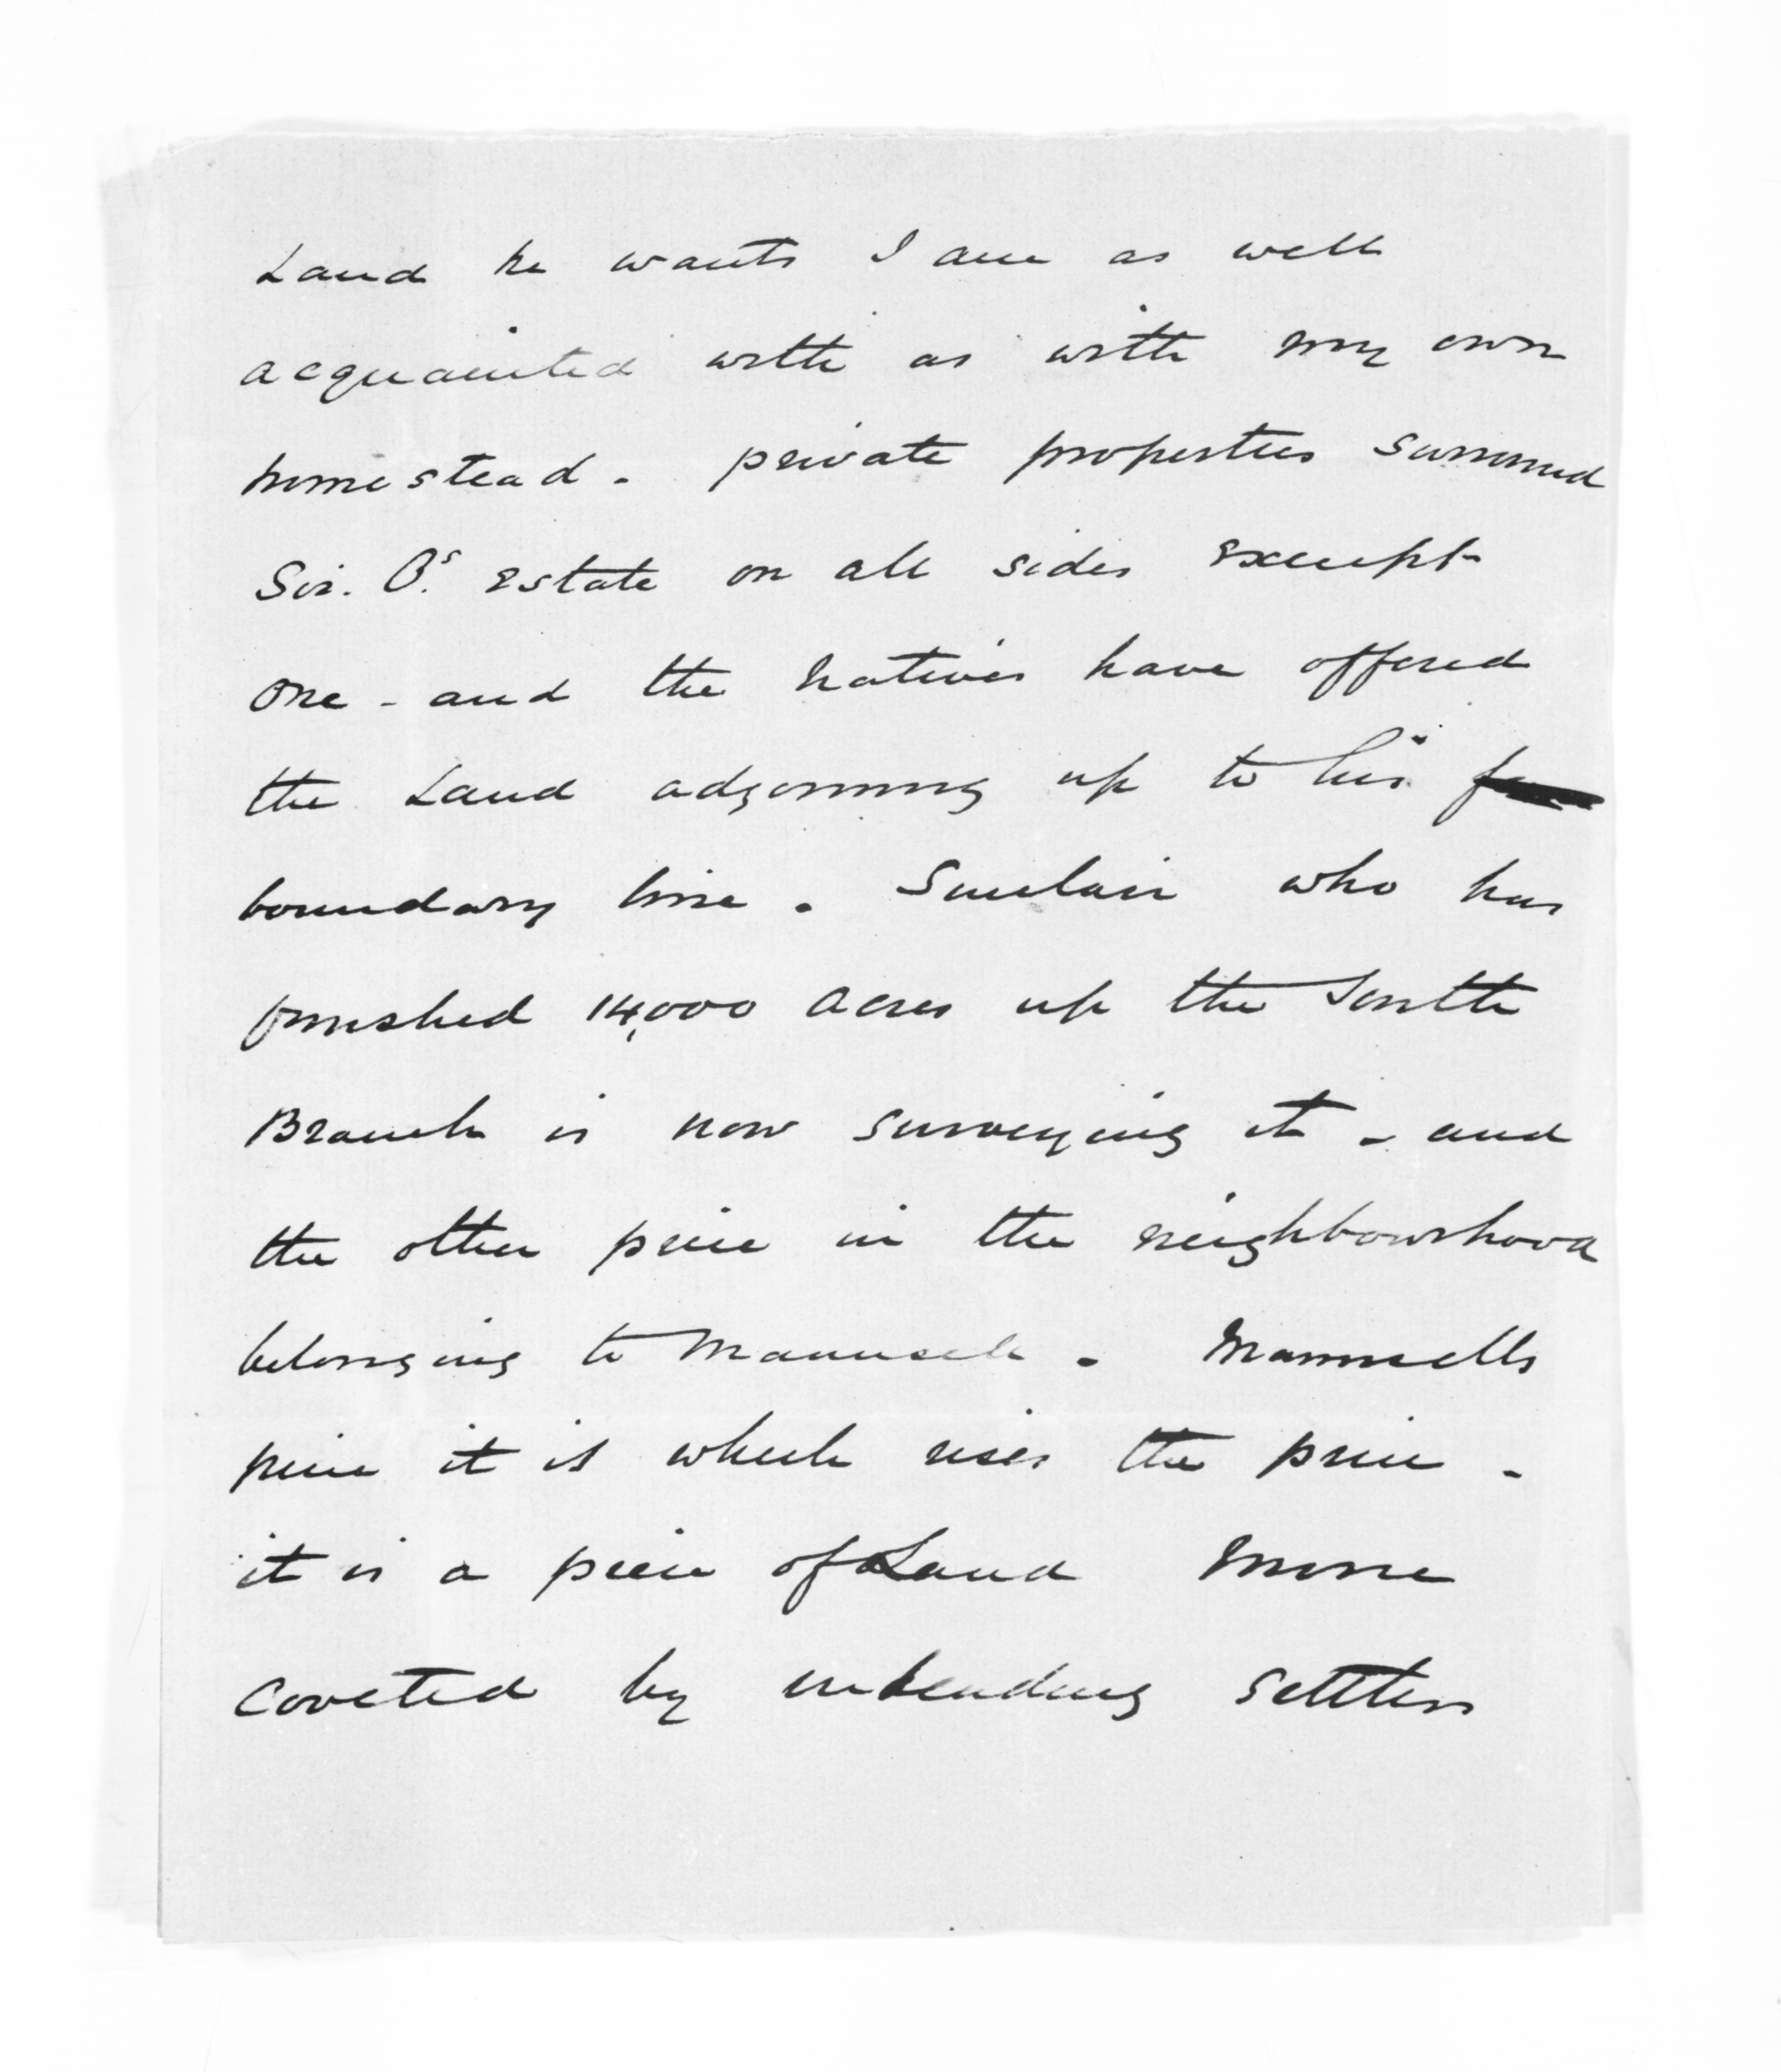 Land he wants I am as well
acquainted with as with my own
homestead. private properties surround
Sir. O.s estate on all sides except
one - and the natives have offered
the Land adjoining up to his
boundary line. Sinclair who has
finished 14,000 acres up the South
Branch is now surveying it - and
the other piece in the neighbourhood
belonging to Maunsell. Maunsells
piece it is which rises the price -
it is a piece of Land more
coveted by intending settlers